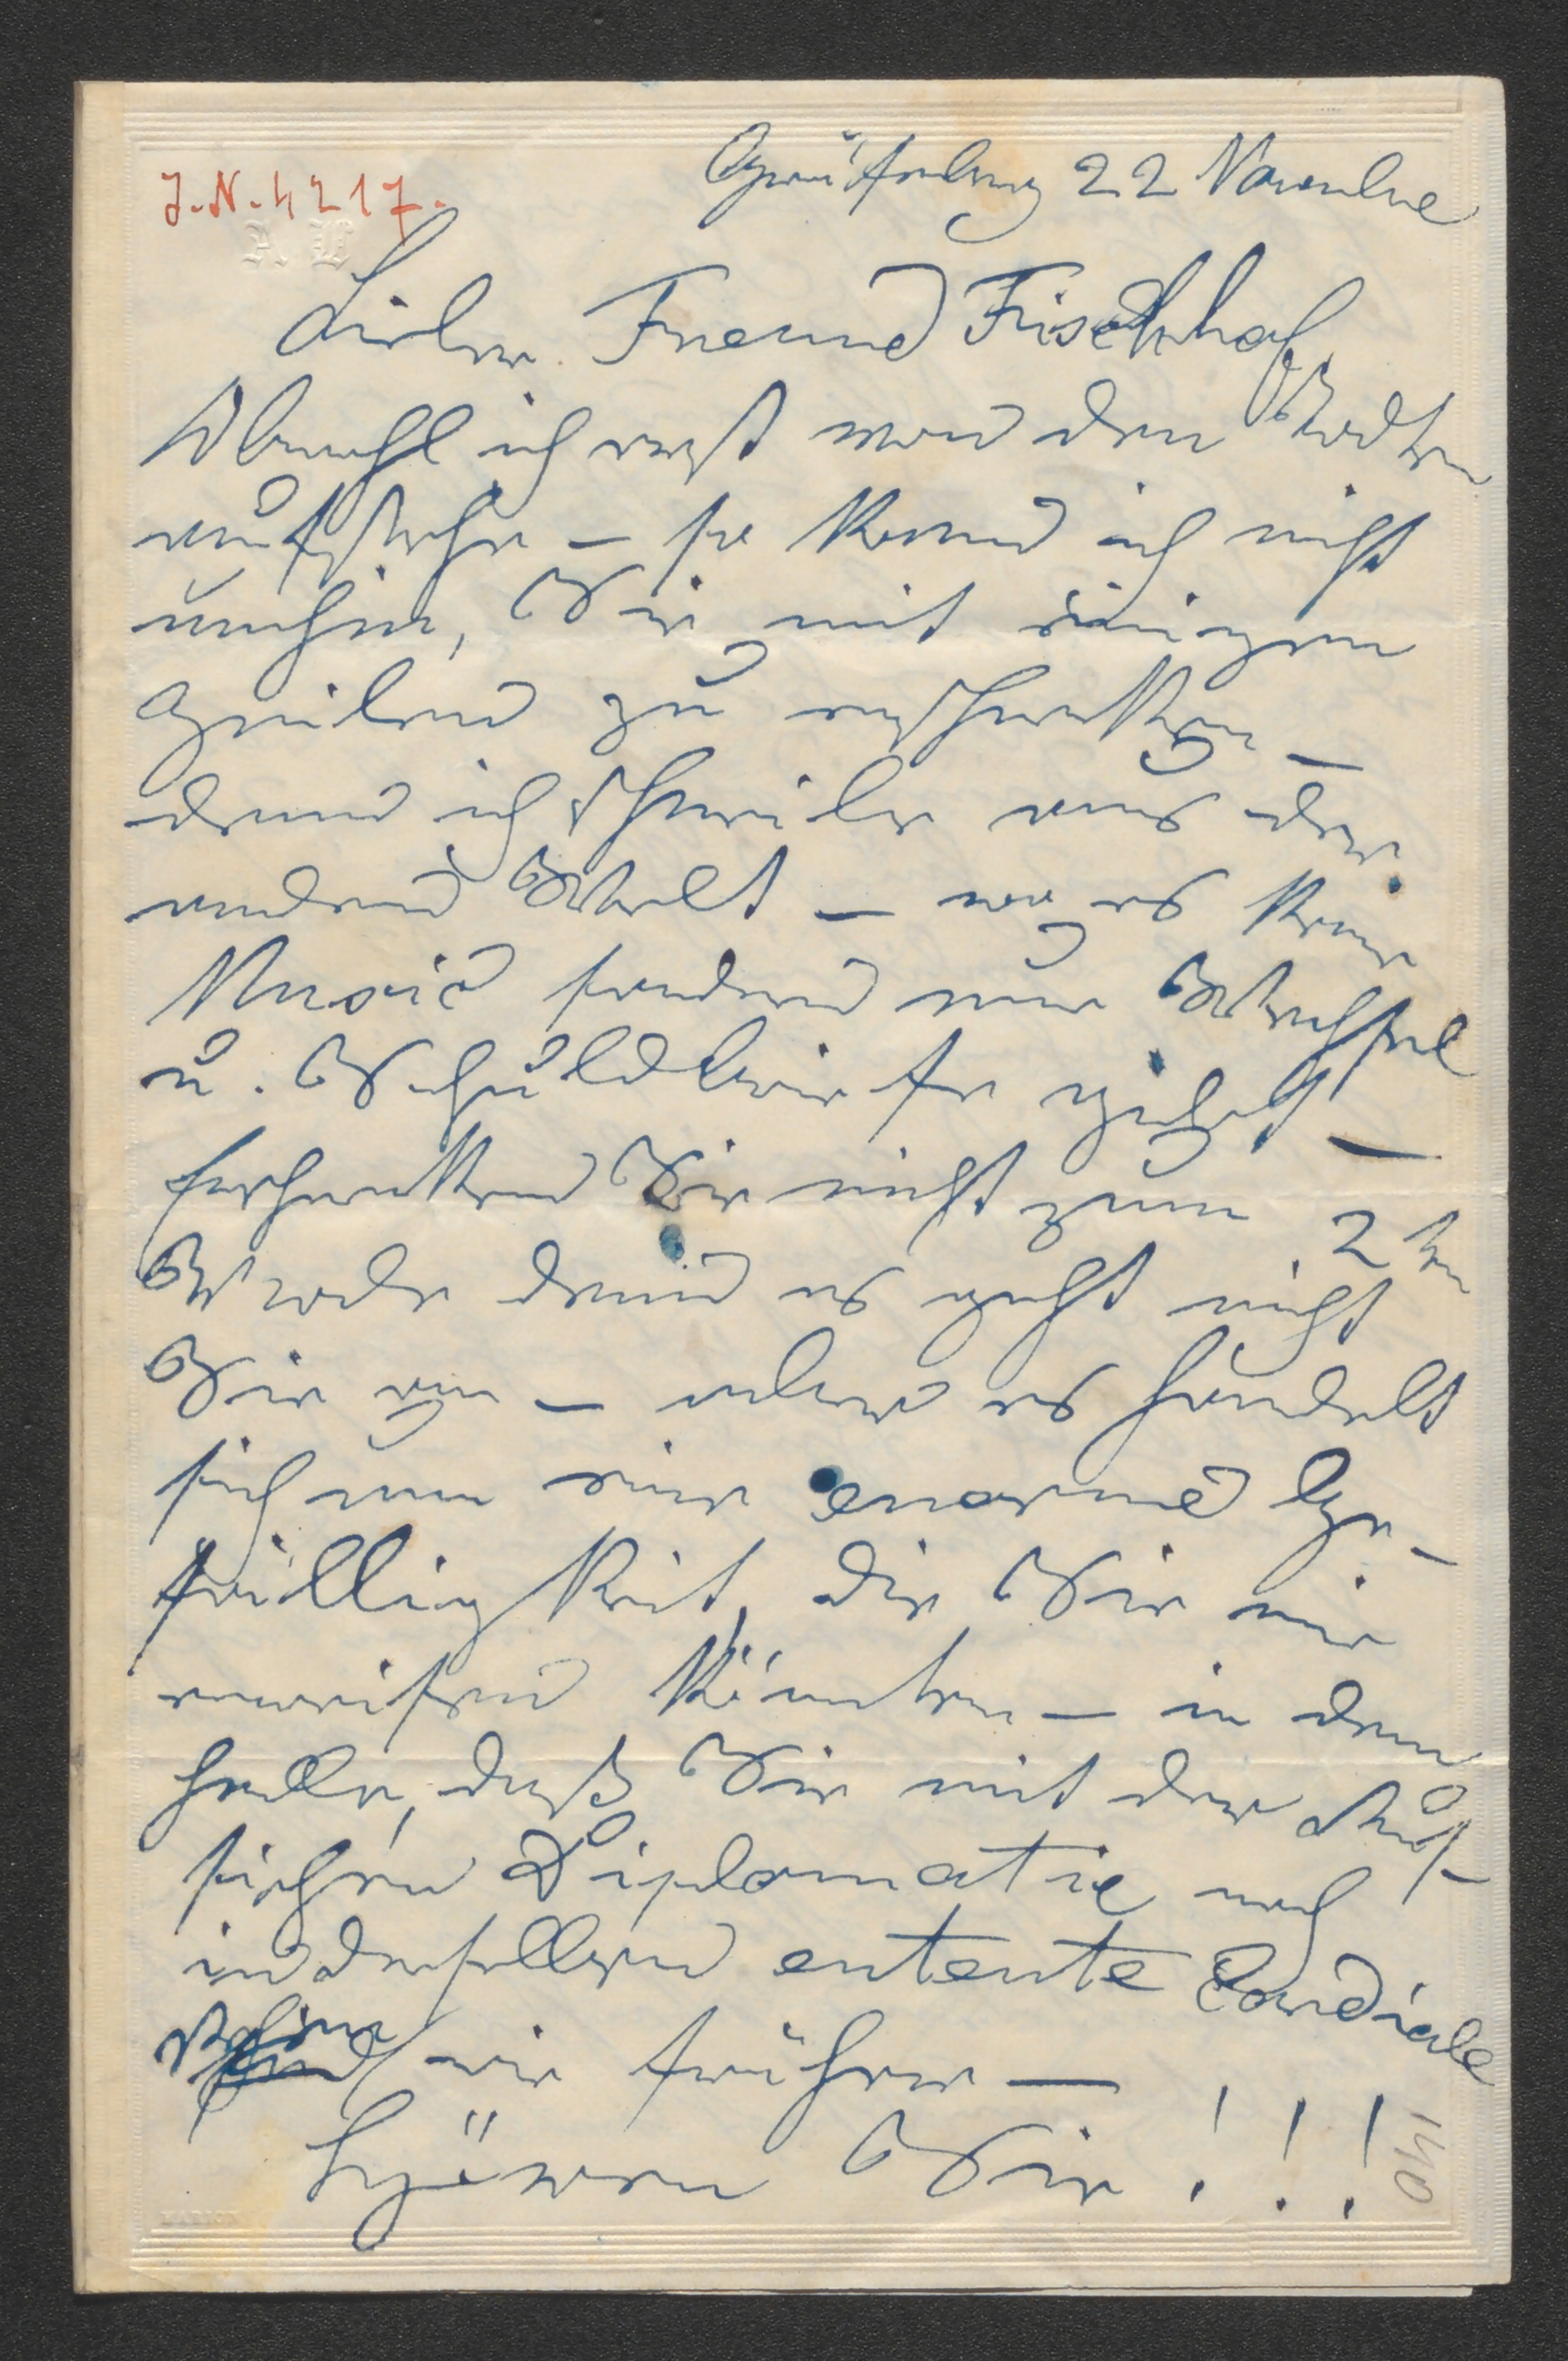 J.N. 4217.
A. B
Gräfenberg 22 Novembre
Lieber Freund Fischhof
Obwohl ich erst von den Todten
aufstehe – so kann ich nicht
umhin, Sie mit einigen
Zeilen zu erschrecken –
denn ich schreibe aus der
andern Welt – wo es keine
Music sondern nur Wechsel
u. Schuldbriefe giebt –
Erschrecken Sie nicht zum 2ten
Male denn es geht nicht
Sie an – aber es handelt
sich um eine enorme Ge-
fälligkeit, die Sie mir
erweisen könnten – in dem
Falle, daß Sie mit der
Diplomatie noch
in derselben entente Cordiale
wie früher –
Hören Sie !!!
140
MARION